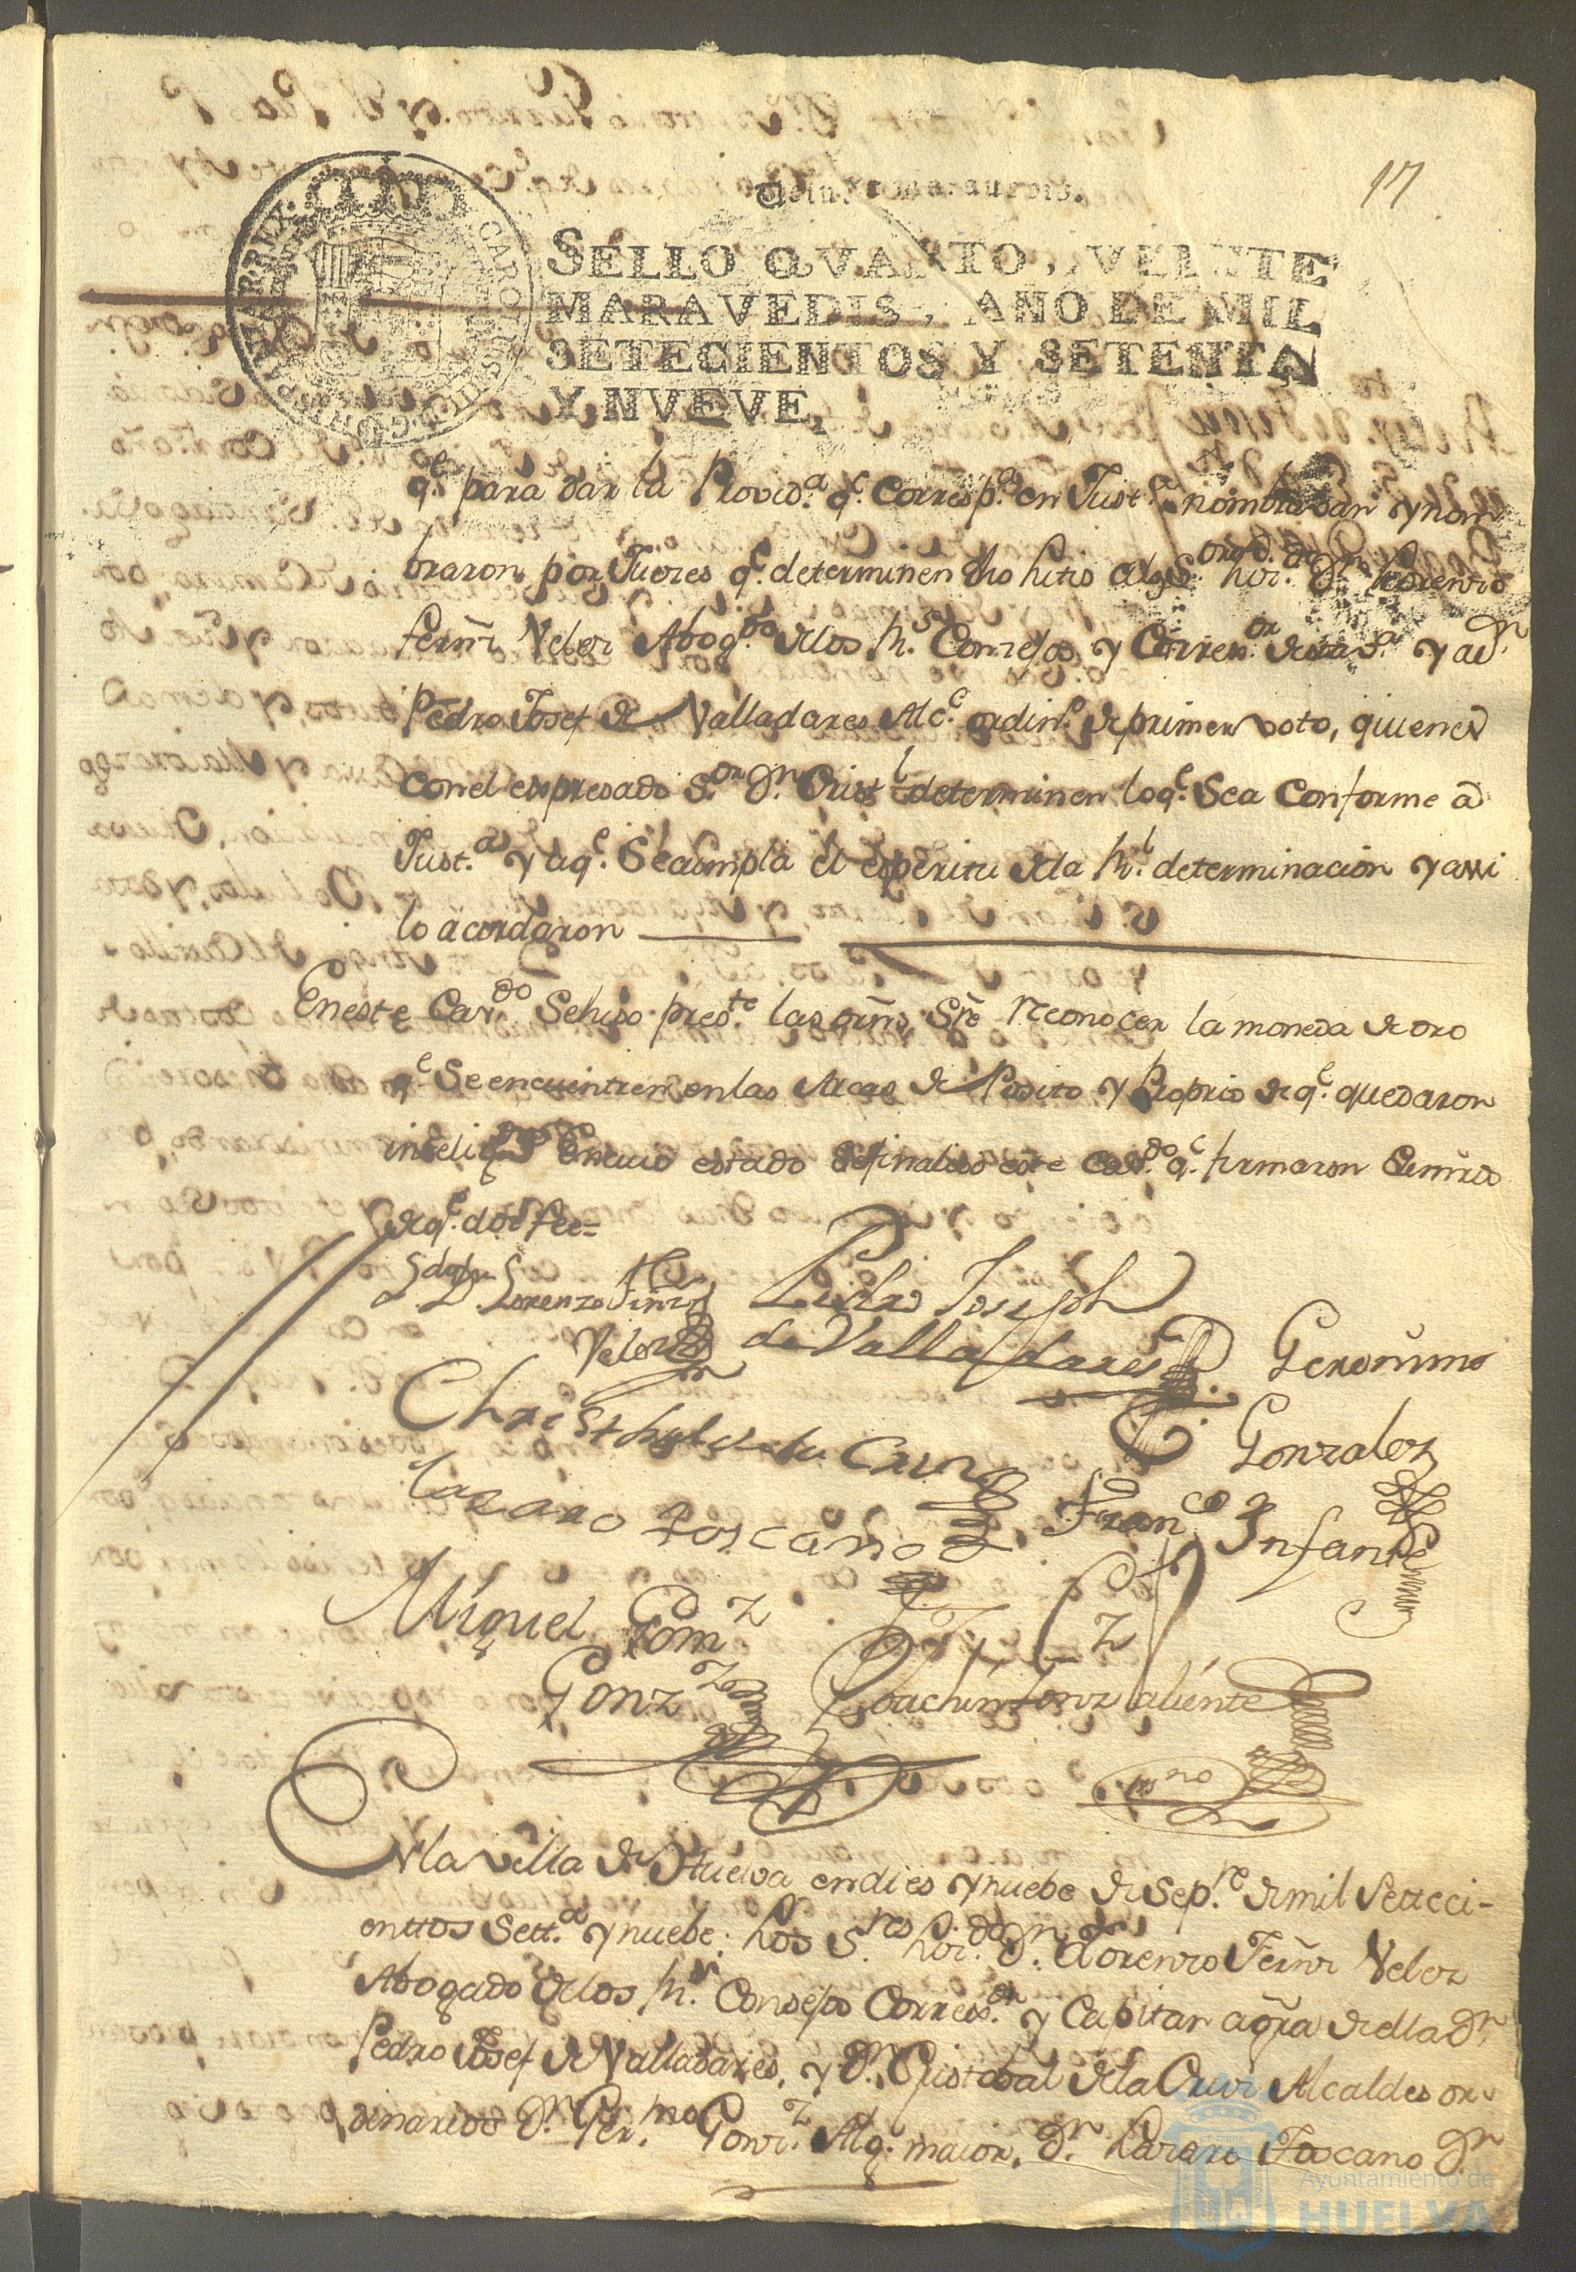 17
Veinte maravedis.
SELLO QVARTO, VEINTE
MARAVEDIS, AÑO DE MIL
SETECIENTOS Y SETENTA
Y NVEVE,
CAROLUS III D G HISPANIAR REX
qe. para dar la Provid.a q.e corresp.e en Just.a nombraban y nom
braron por Jueces q.e determinen dho litis alos S.ores Liz.do D.n Lorenzo
fern̄z Velez Abog.do delos R.s Consejos y Correx.or desta v.a y a d.n
Pedro Josef de Valladares Alc.e ordin.o de primer voto, quienes
con el expresado S.or D.n Crist.l determinen loq.e Sea Conforme a
Just.a y aq.e Secumpla el espiritu dela R.l determinacion y assi
lo acordaron
Eneste Cav.do Sehizo pres.te las orñs Sr̄e reconocer la moneda de oro
q.e Seencuentren enlas Arcas de Posito y Proprio de q.e quedaron
intelig.dos encuio estado sefinalizo este Cav.do q.e firmaron Sus mrds
deq.e doi fee=
L.do D.n Lorenzo Fern̄z
Velez
Pedro Joseph
de Valladares
Geronimo
Gonzalez
Christhobal de la Cruz
Lazaro Toscano
Fran.co Infante
Miguel Gom.z
Gonz.z
Joachin Gonz aliente
ss.no
En la villa de Huelva en dies y nuebe de Sep.re de mil Setteci-
enttos Sett.a y nuebe: Los S.res Liz.do D.n Lorenzo Fern̄z Velez
Abogado delos R.s Consejos Correx.or y Capitan aḡra de ella D.n
Pedro Josef de Valladares, y D.n Cristobal dela Cruz Alcaldes or-
dinarios D.n Ger.mo Gonz.z Alg. maior, D.n Lazaro Toscano D.n
Ayuntamiento de
HUELVA